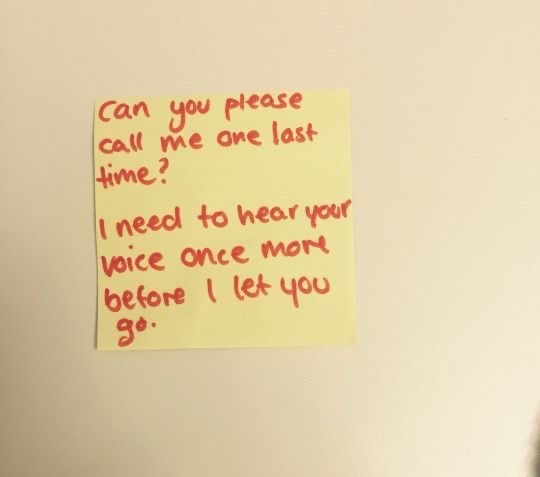 can you please
call me one last
time?
I need to hear your
voice once more
before I let you
go.